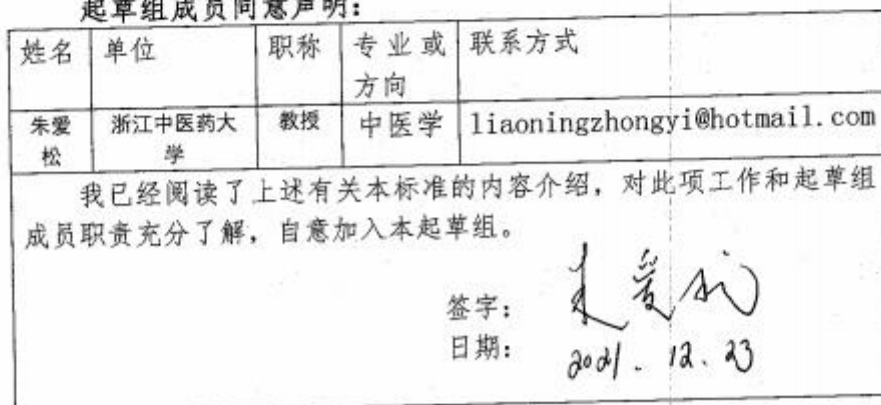 起草组成员同意声明:
姓名 单位 职称 专业或 联系方式
方向
朱爱 浙江中医药大 教授 中医学 liaoningzhongyi@hotmail.com
松 学
我已经阅读了上述有关本标准的内容介绍，对此项工作和起草组
成员职责充分了解，自意加入本起草组。
签字: 朱爱松
日期: 2021.12.23